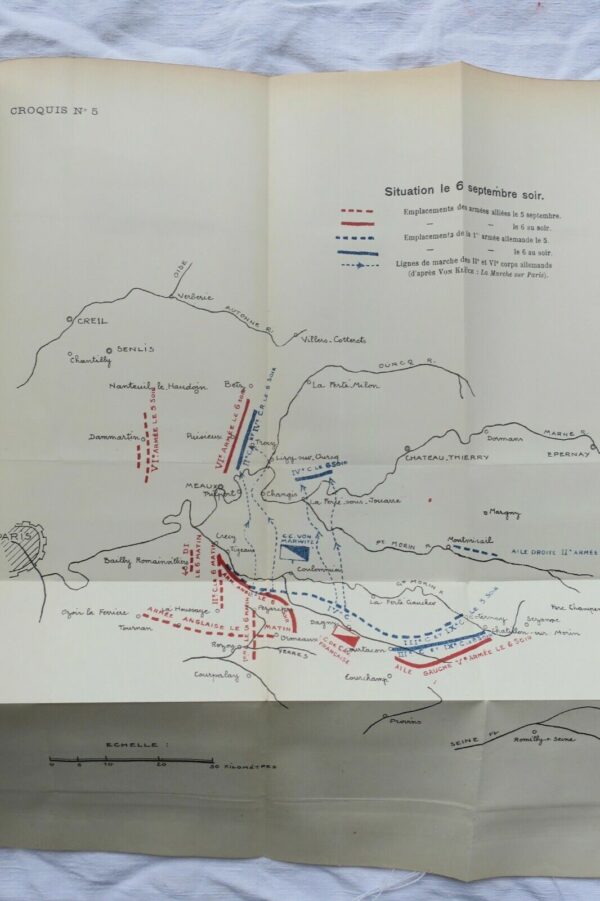 CROQUIS N° 5
Situation le 6 septembre soir.
Emplacements des armées alliées le 5 septembre.
— — le 6 au soir.
Emplacements de la 1re armée allemande le 5.
— — le 6 au soir.
Lignes de marche des IIe et VIe corps allemands
(d'après VON KLÜCK : La Marche sur Paris).
OISE
Verberie
AUTONNE R.
CREIL
Villers-Cotterets
SENLIS
Chantilly
OURCQ R.
Nanteuil le Haudoin
Betz
La Ferte Milon
Dammartin
VIe ARMÉE LE 5 SOIR
Puisieux
VIe ARMÉE LE 6 SOIR
IIe C. et IVe C.R. LE 6 SOIR
Trocy
Dormans
MARNE R.
EPERNAY
Lizy sur Ourcq
CHATEAU-THIERRY
IVe C. LE 6 SOIR
MEAUX
Changis
La Ferte sous Jouarre
Margny
PARIS
Crecy
C.C. VON
MARWITZ
Pt MORIN R.
Montmirail
AILE DROITE IIe ARMÉE
Bailly Romainvillers
LE 6 MATIN
Tigeaux
Coulommiers
Gd MORIN R.
La Ferte Gaucher
IIIe C. et IXe C. LE 5 SOIR
Esternay
Sezanne
Fère Champen
Ozoir la Ferriere
Houssaye
IV C
Tournan
ARMÉE ANGLAISE LE 5
MATIN
Ormeaux
Dagny
C. DE C.
FRANÇAISE
Courtacon
Chatillon sur Morin
Rozoy
YERRES
AILE GAUCHE Ve ARMÉE LE 6 SOIR
Courpalay
Louchamp
Provins
SEINE Fl.
Romilly s Seine
ECHELLE :
0 5 10 20 30 KILOMÈTRES